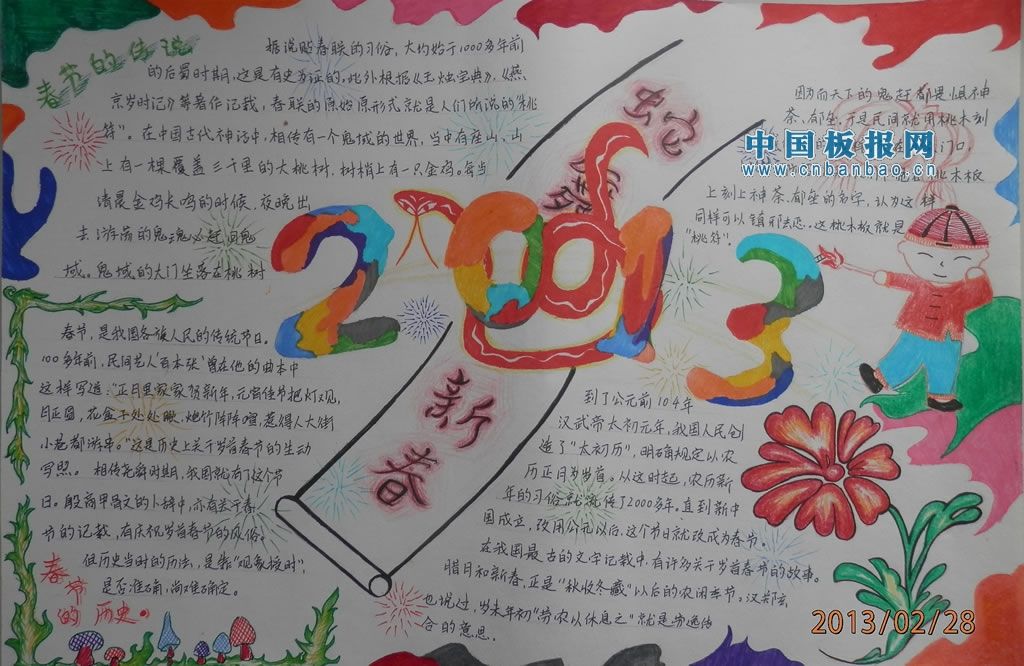 春节的传说
据说贴春联的习俗，大约始于1000多年前
的后蜀时期，这是有史为证的，此外根据《玉烛宝典》，《燕
京岁时记》等著作记载，春联的原始原形式就是人们所说的"桃
符"。在中国古代神话中，相传有一个鬼域的世界，当中有座山，山
上有一棵覆盖三千里的大桃树，树梢上有一只金鸡。每当
清晨金鸡长鸣的时候，夜晚出
去游荡的鬼魂必赶回鬼
域。鬼域的大门坐落在桃树
因为而天下的鬼都畏惧神
茶、郁垒，于是民间就用桃木刻
门口，
桃木板
上刻上神茶、郁垒的名字，认为这样
同样可以镇邪去恶。这桃木板就是
"桃符"。
中国板报网
www.cnbanbao.cn
蛇
2013
新
春
春节，是我国各族人民的传统节日，
100多年前，民间艺人'百本张'曾在他的曲本中
这样写道："正月里家家贺新年，元宵佳节把灯观，
月正圆，花盒子处处瞅，炮竹阵阵喧，惹得人大街
小巷都游串。"这是历史上关于岁首春节的生动
写照。 相传尧舜时期，我国就有了这个节
日。殷商甲骨文的卜辞中，亦有关于春
坊的记载，有庆祝岁首春节的风俗。
但历史当时的历法，是靠"观象授时"，
是否准确，尚难确定。
春节
的历史
到了公元前104年
汉武帝太初元年，我国人民创
造了"太初历"，明确规定以农
历正月为岁首。从这时起，农历新
年的习俗就流传了2000多年，直到新中
国成立，改用公元以后，这个节日就改成为春节。
在我国最古的文字记载中，有许多关于岁首春节的故事。
腊月和新春，正是"秋收冬藏"以后的农闲季节。汉郑玄
也说过，岁末年初"劳农以休息之"就是劳逸结
合的意思。
2013/02/28